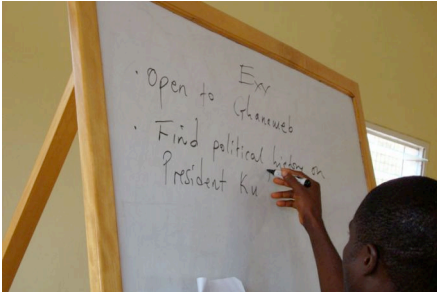 Exr
• Open to Ghanaweb
• Find political history on
President Ku